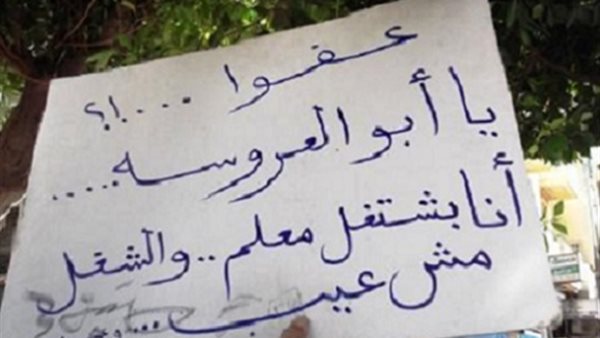 عفوا ....!؟
يا أبو العروسه ....
أنا بشتغل معلم .. والشغل
مش عيب ...